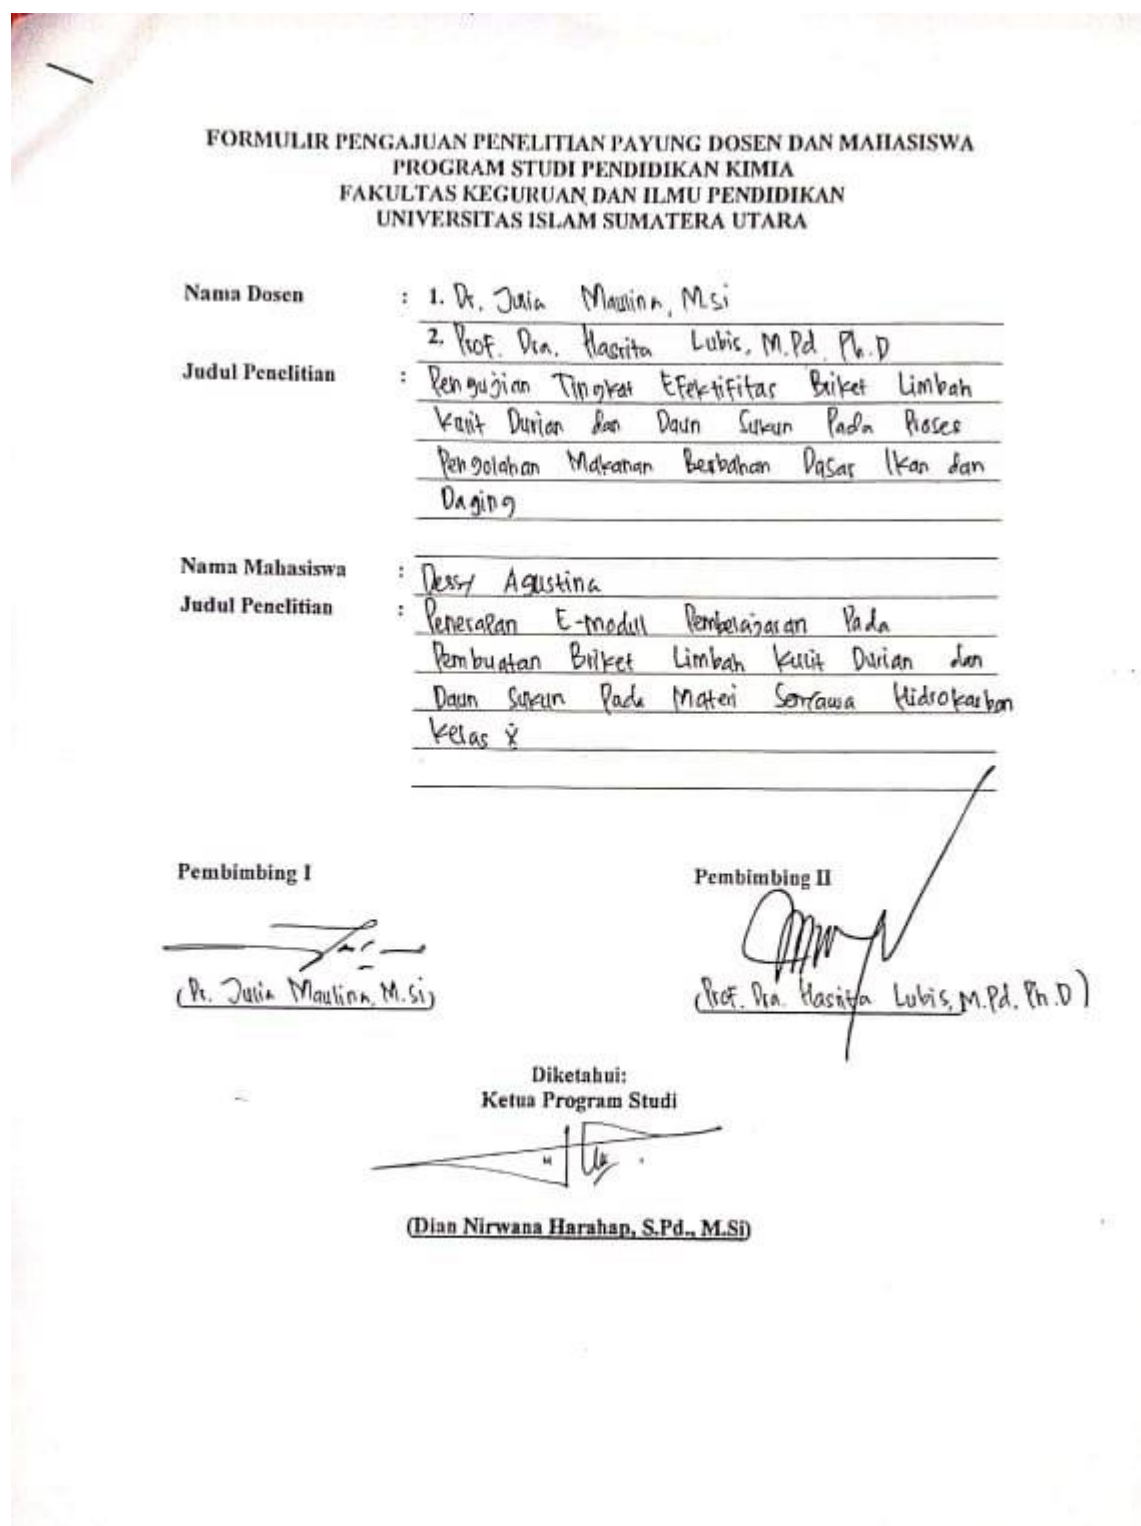 FORMULIR PENGAJUAN PENELITIAN PAYUNG DOSEN DAN MAHASISWA
PROGRAM STUDI PENDIDIKAN KIMIA
FAKULTAS KEGURUAN DAN ILMU PENDIDIKAN
UNIVERSITAS ISLAM SUMATERA UTARA
Nama Dosen : 1. Dr. Julia Maulina, M.si
2. Prof. Dra. Hasrita Lubis, M.Pd. Ph.D
Judul Penelitian : Pengujian Tingkat Efektifitas Briket Limbah
Kulit Durian dan Daun Sukun Pada Proses
Pengolahan Makanan Berbahan Dasar Ikan dan
Daging
Nama Mahasiswa : Dessy Agustina
Judul Penelitian : Penerapan E-modul Pembelajaran Pada
Pembuatan Briket Limbah Kulit Durian dan
Daun Sukun Pada Materi Senyawa Hidrokarbon
Kelas X
Pembimbing I Pembimbing II
(Dr. Julia Maulina, M.Si) (Prof. Dra. Hasrita Lubis, M.Pd. Ph.D)
Diketahui:
Ketua Program Studi
(Dian Nirwana Harahap, S.Pd., M.Si)